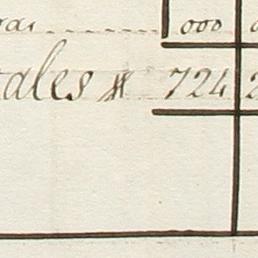 000
ales $ 724